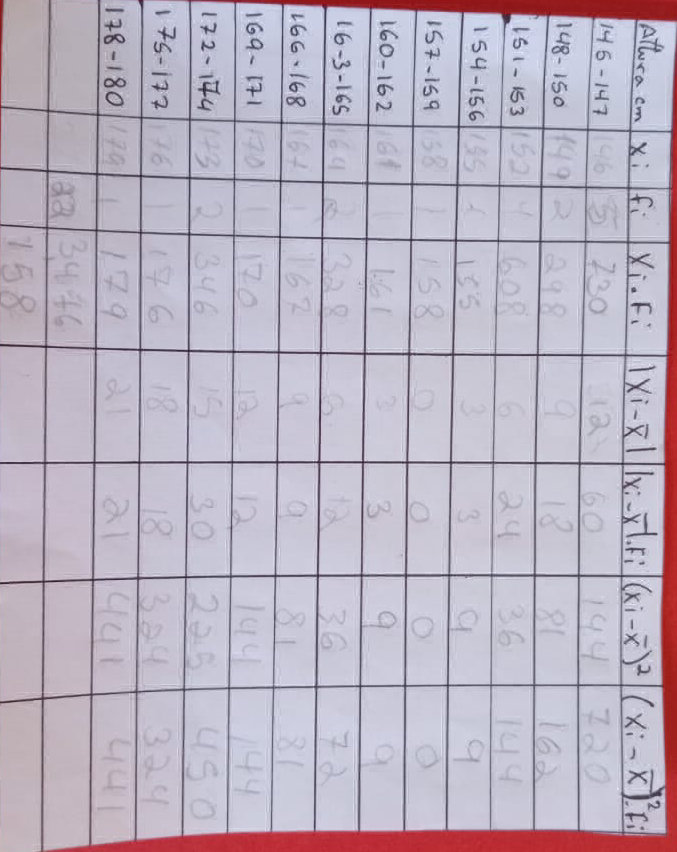 Altura cm xi fi xi.Fi |xi-x̄| |xi-x̄|.Fi (xi-x̄)² (xi-x̄)².fi
145-147 146 5 730 12 60 144 720
148-150 149 2 298 9 18 81 162
151-153 152 4 608 6 24 36 144
154-156 155 1 155 3 3 9 9
157-159 158 1 158 0 0 0 0
160-162 161 1 161 3 3 9 9
163-165 164 2 328 6 12 36 72
166-168 167 1 167 9 9 81 81
169-171 170 1 170 12 12 144 144
172-174 173 2 346 15 30 225 450
175-177 176 1 176 18 18 324 324
178-180 179 1 179 21 21 441 441
22 3476
158